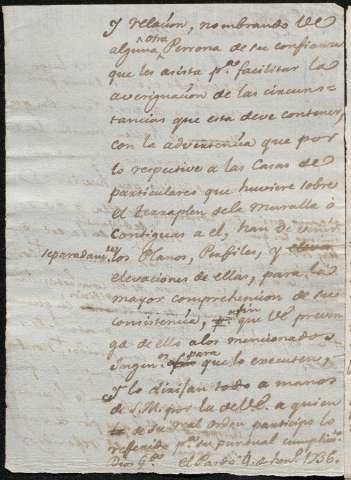 y relacion, nombrando VE
alguna otra Perzona de su confianza
que les asista pª. facilitar la
averiguacion de las circuns-
tancias que esta deve contener,
con la advertencia que por
lo respective a las Casas de
particulares que huviere sobre
el terraplen dela Muralla ô
Contiguas a el, han de venir
separadamte. los Planos, Perfiles, y eleva
elevaciones de ellas, para la
mayor comprehencion de su
consistencia, fin que VE preven
ga de ello alos mencionados
Ingenros. para que lo executen,
y lo dirijan todo a manos
de S.M. por la de VE. a quien
de su Real orden participo lo
refferido pª. su puntual cumplimto.
Dios Gde. el Pardo 4 de Henro. 1736.